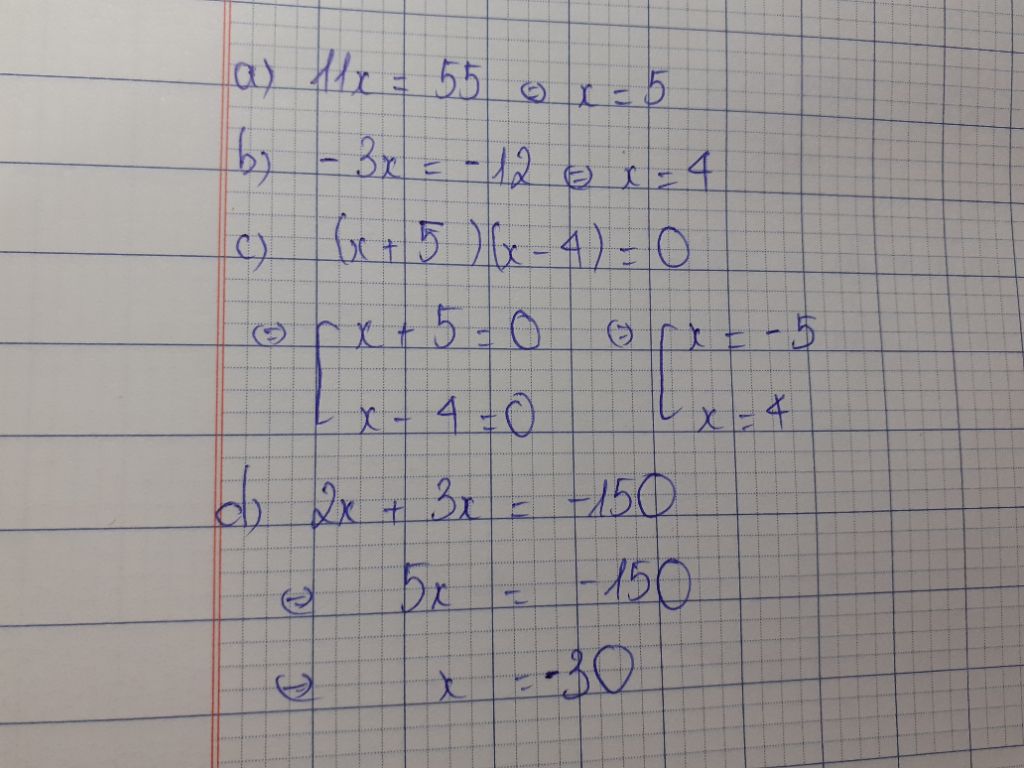 a) 11x = 55 ⇔ x = 5
b) - 3x = -12 ⇔ x = 4
c) (x + 5)(x - 4) = 0
⇔ [ x + 5 = 0 ⇔ [ x = -5
x - 4 = 0 x = 4
d) 2x + 3x = -150
⇔ 5x = -150
⇔ x = -30